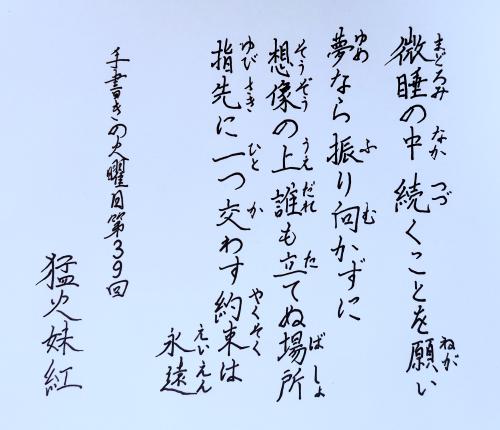 微睡の中続くことを願い
夢なら振り向かずに
想像の上誰も立てぬ場所
指先に一つ交わす約束は
永遠
手書きの火曜日第39回
猛火妹紅
まどろみ なか つづ ねが
ゆめ ふ む
そうぞう うえ だれ た ばしょ
ゆびさき ひと か やくそく
えいえん